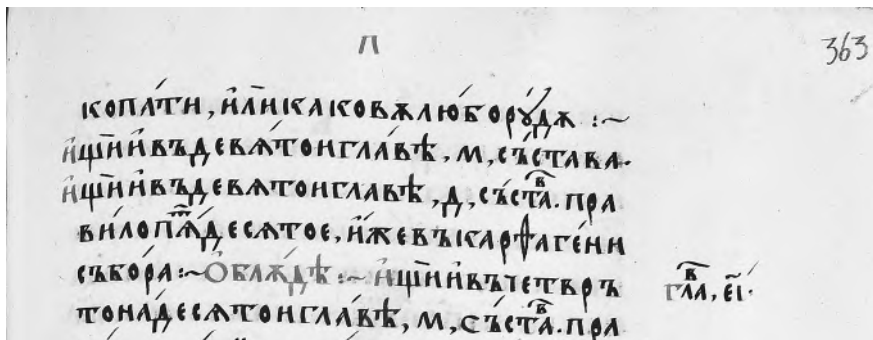 П
363
копа́ти, и҆лѝ каковалю́бо рꙋ́дѧ :~
и҆щѝ и҆ въ девѧ́тои гла́вѣ, м҃, съста́ва.
и҆щѝ и҆ въ девѧ́тои главѣ, д҃, съста́в. пра
ви́ло пѧтдесѧтое, и҆́же въ карфаге́ни
събо́ра :~ Ѻ҆ блѫ́дѣ :~ и҆щѝ и҆ въ четвръ
гла́в, е҃і·
тона́десѧтои гла́вѣ, м҃, съста́в. пра